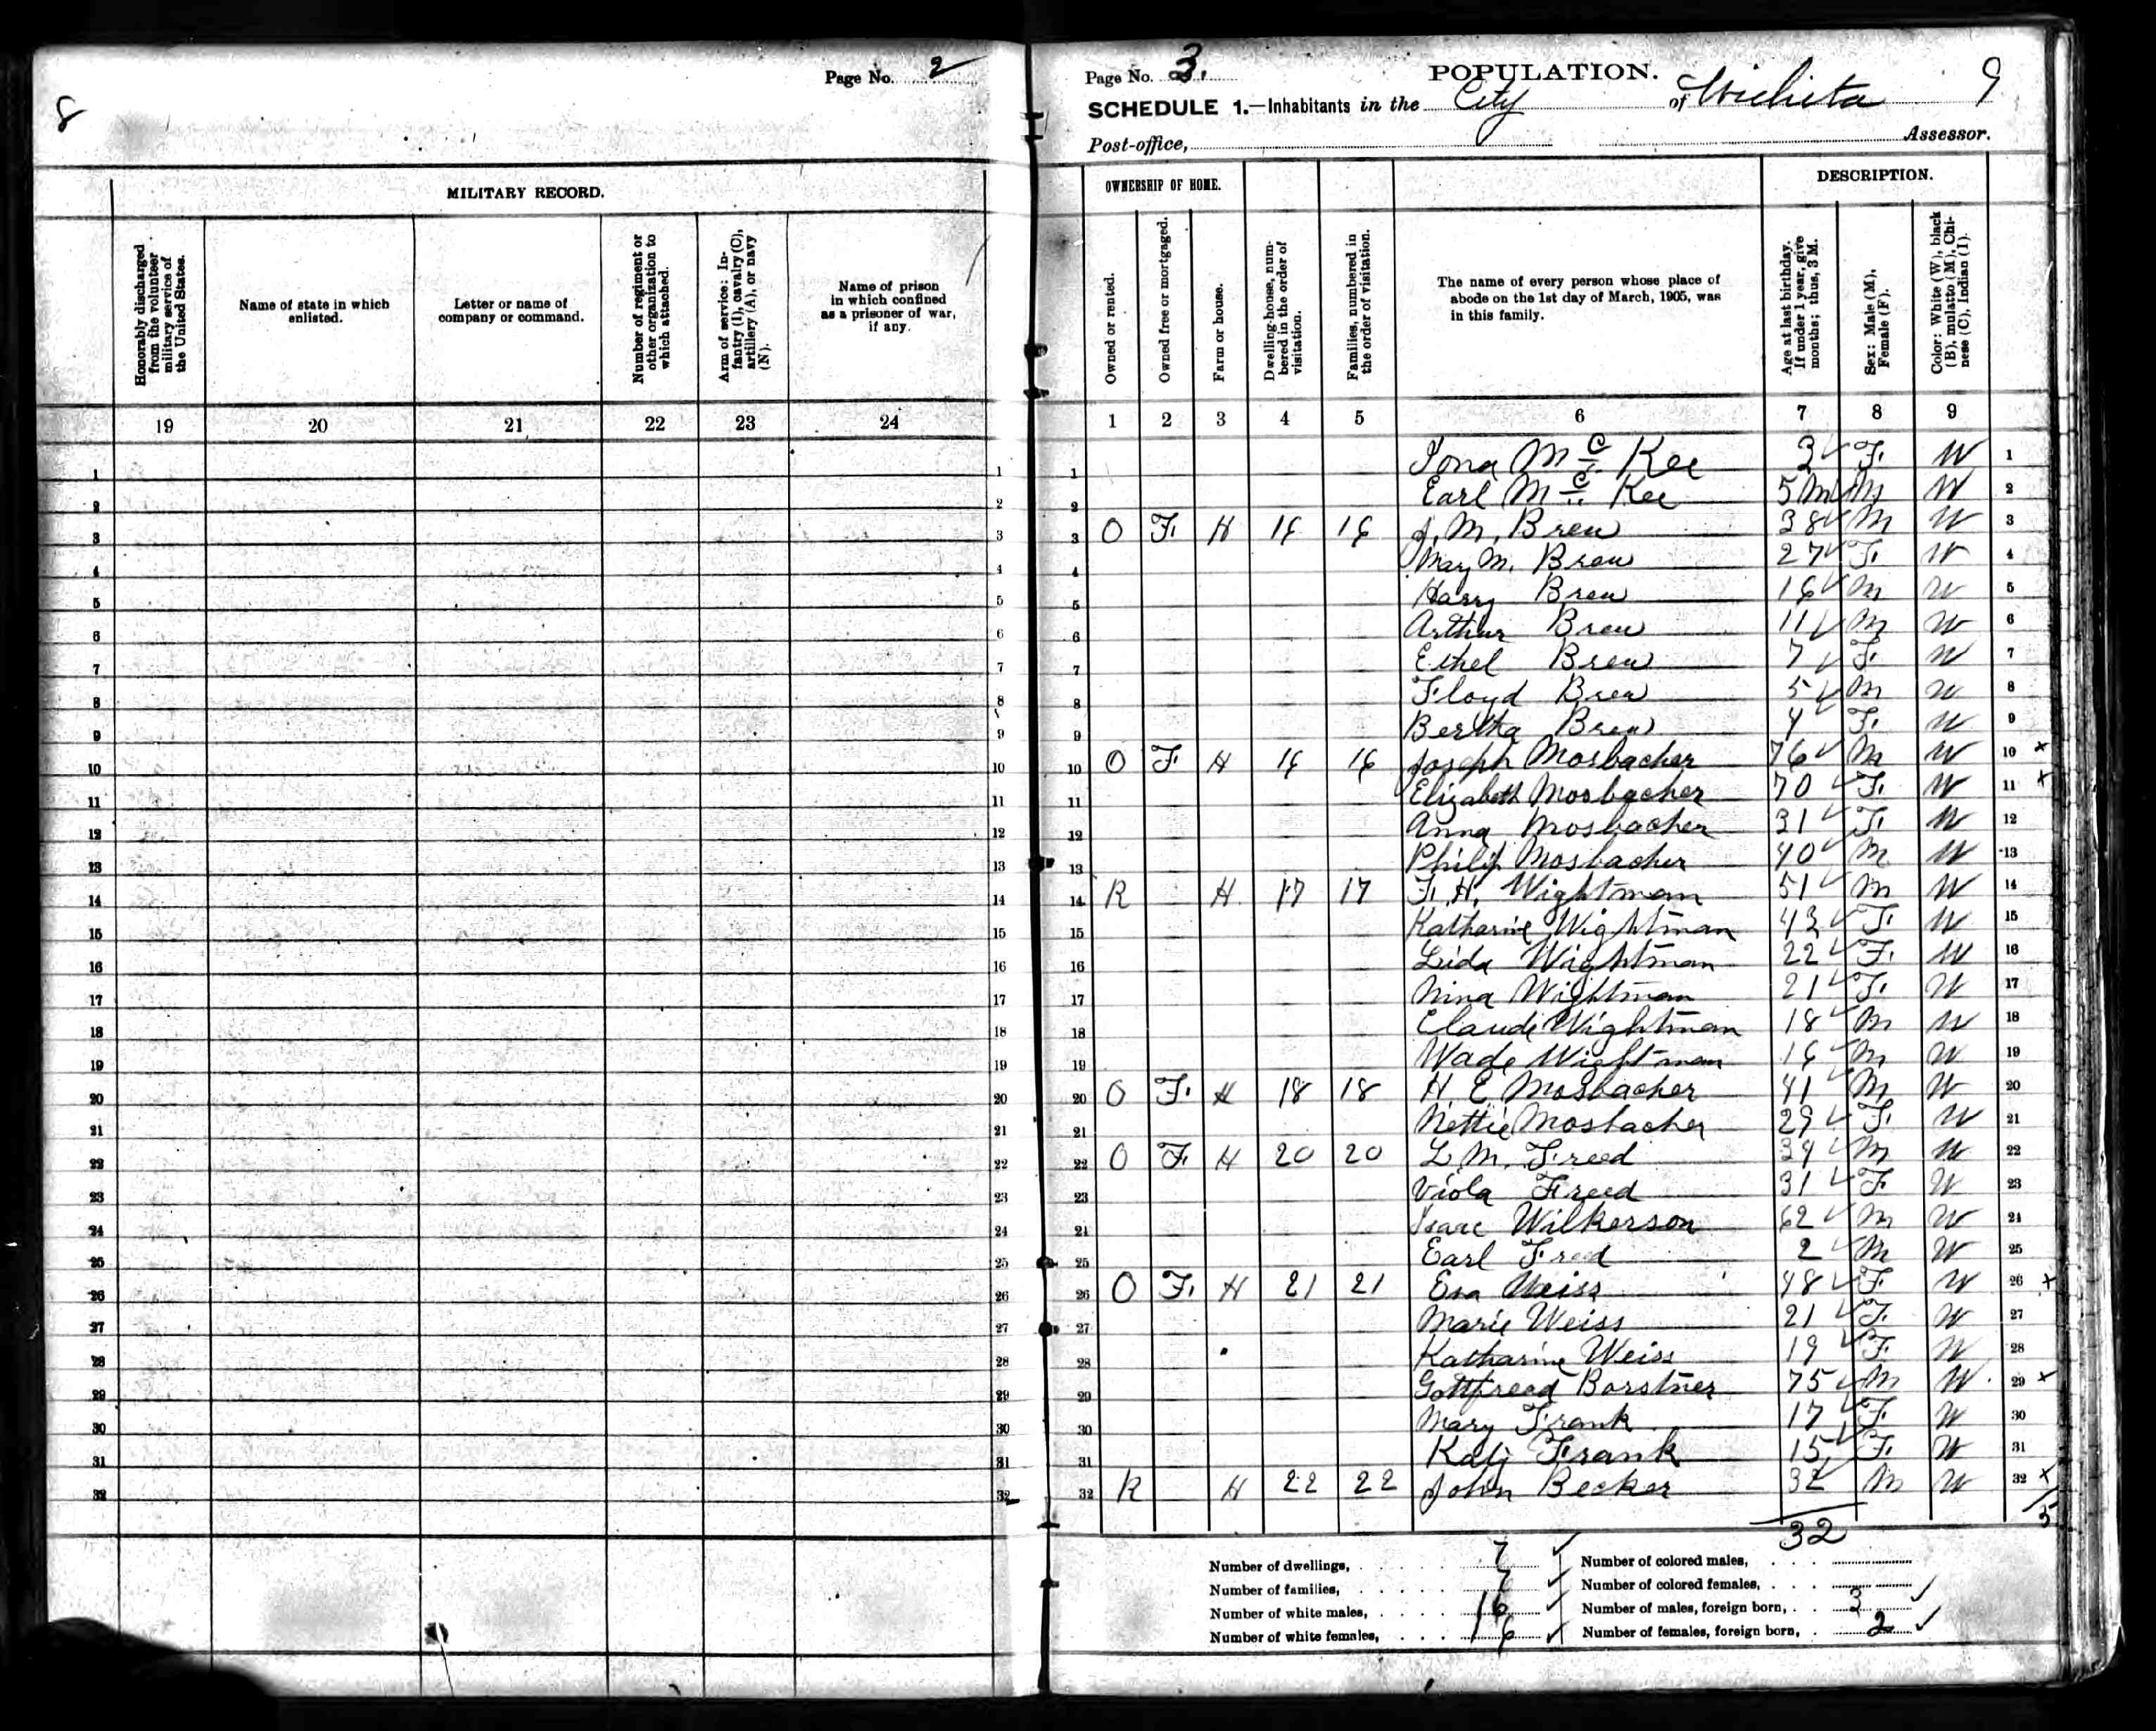 8
Page No. 2
MILITARY RECORD.
Honorably discharged from the volunteer military service of the United States.
Name of state in which enlisted.
Letter or name of company or command.
Number of regiment or other organization to which attached.
Arm of service: Infantry (I), cavalry (C), artillery (A), or navy (N).
Name of prison in which confined as a prisoner of war, if any.
19 20 21 22 23 24
Page No. 3.
POPULATION.
9
SCHEDULE 1.—Inhabitants in the City of Wichita
Post-office, Assessor.
OWNERSHIP OF HOME.
DESCRIPTION.
Owned or rented.
Owned free or mortgaged.
Farm or house.
Dwelling-house, numbered in the order of visitation.
Families, numbered in the order of visitation.
The name of every person whose place of abode on the 1st day of March, 1905, was in this family.
Age at last birthday. If under 1 year, give months; thus, 3 M.
Sex: Male (M), Female (F).
Color: White (W), black (B), mulatto (M), Chinese (C), Indian (I).
1 2 3 4 5 6 7 8 9
1 Iona McKee 3 F. W 1
2 Earl McKee 5 M M W 2
3 O F. H 15 15 J. M. Brew 38 M W 3
4 Mary M. Brew 27 F. W 4
5 Harry Brew 16 M W 5
6 Arthur Brew 11 M W 6
7 Ethel Brew 7 F. W 7
8 Floyd Brew 5 M W 8
9 Bertha Brew 4 F. W 9
10 O F. H 16 16 Joseph Mosbacher 76 M W 10 x
11 Elizabeth Mosbacher 70 F. W 11 x
12 Anna Mosbacher 31 F. W 12
13 Philip Mosbacher 40 M W 13
14 R H 17 17 F. H. Wightman 51 M W 14
15 Katharine Wightman 43 F. W 15
16 Lida Wightman 22 F. W 16
17 Nina Wightman 21 F. W 17
18 Claude Wightman 18 M W 18
19 Wade Wightman 16 M W 19
20 O F. H 18 18 H. E. Mosbacher 41 M W 20
21 Nettie Mosbacher 29 F. W 21
22 O F. H 20 20 L. M. Freed 34 M W 22
23 Viola Freed 31 F. W 23
24 Isaac Wilkerson 62 M W 24
25 Earl Freed 2 M W 25
26 O F. H 21 21 Eva Weiss 48 F. W 26 x
27 Marie Weiss 21 F. W 27
28 Katharine Weiss 19 F. W 28
29 Gottfreed Borstner 75 M W. 29 x
30 Mary Frank 17 F. W 30
31 Katy Frank 15 F. W 31
32 R H 22 22 John Becker 32 M W 32 x
32 5
Number of dwellings, 7 Number of colored males,
Number of families, 7 Number of colored females,
Number of white males, 16 Number of males, foreign born, 3
Number of white females, 16 Number of females, foreign born, 2